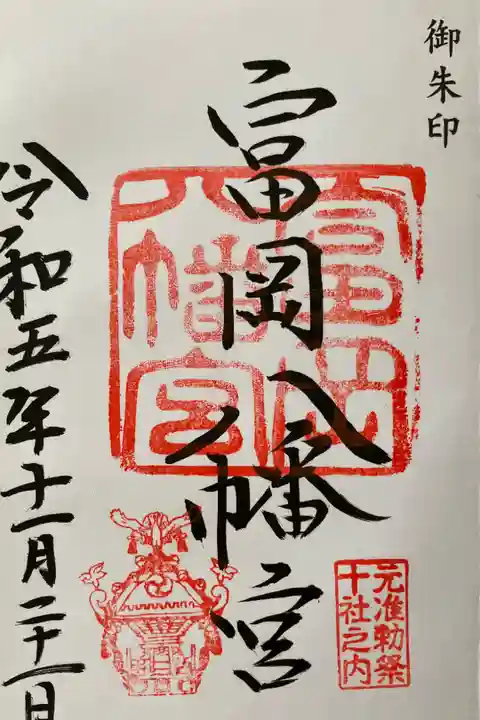 御朱印
富岡八幡宮
富岡
八幡宮
元准勅祭
十社之内
令和五年十一月二十一日